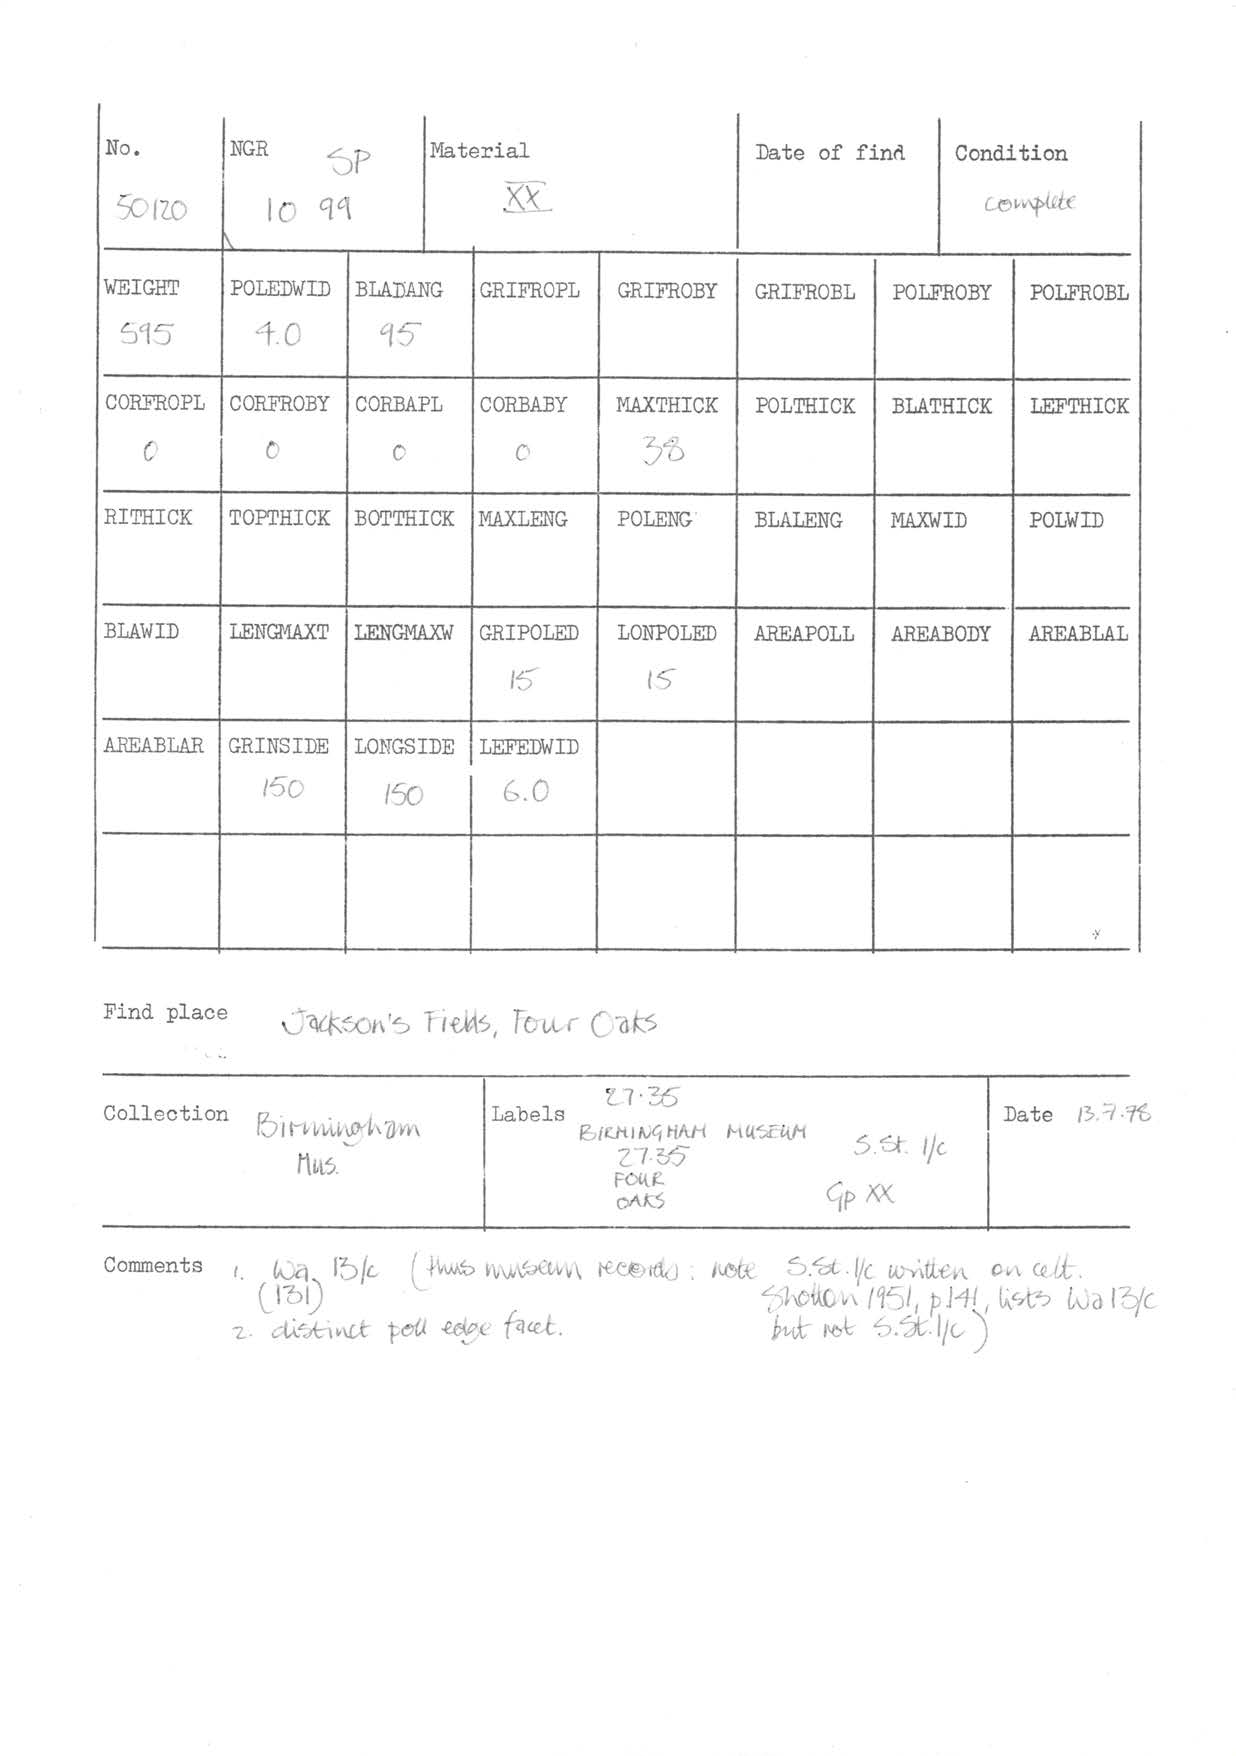 No. NGR SP Material Date of find Condition
50120 10 99 XX complete
WEIGHT POLEDWID BLADANG GRIFROPL GRIFROBY GRIFROBL POLFROBY POLFROBL
595 4.0 95
CORFROPL CORFROBY CORBAPL CORBABY MAXTHICK POLTHICK BLATHICK LEFTHICK
0 0 0 0 38
RITHICK TOPTHICK BOTTHICK MAXLENG POLENG BLALENG MAXWID POLWID
BLAWID LENGMAXT LENGMAXW GRIPOLED LONPOLED AREAPOLL AREABODY AREABLAL
15 15
AREABLAR GRINSIDE LONGSIDE LEFEDWID
150 150 6.0
Find place Jackson's Fields, Four Oaks
Collection Birmingham
Mus.
Labels 27.35
BIRMINGHAM MUSEUM
27.35
FOUR
OAKS
S.St. 1/c
Gp XX
Date 13.7.78
Comments 1. Wa 13/c (thus museum records: note S.St.1/c written on celt.
(131) Shotton 1951, p141, lists Wa13/c
2. distinct poll edge facet. but not S.St.1/c)